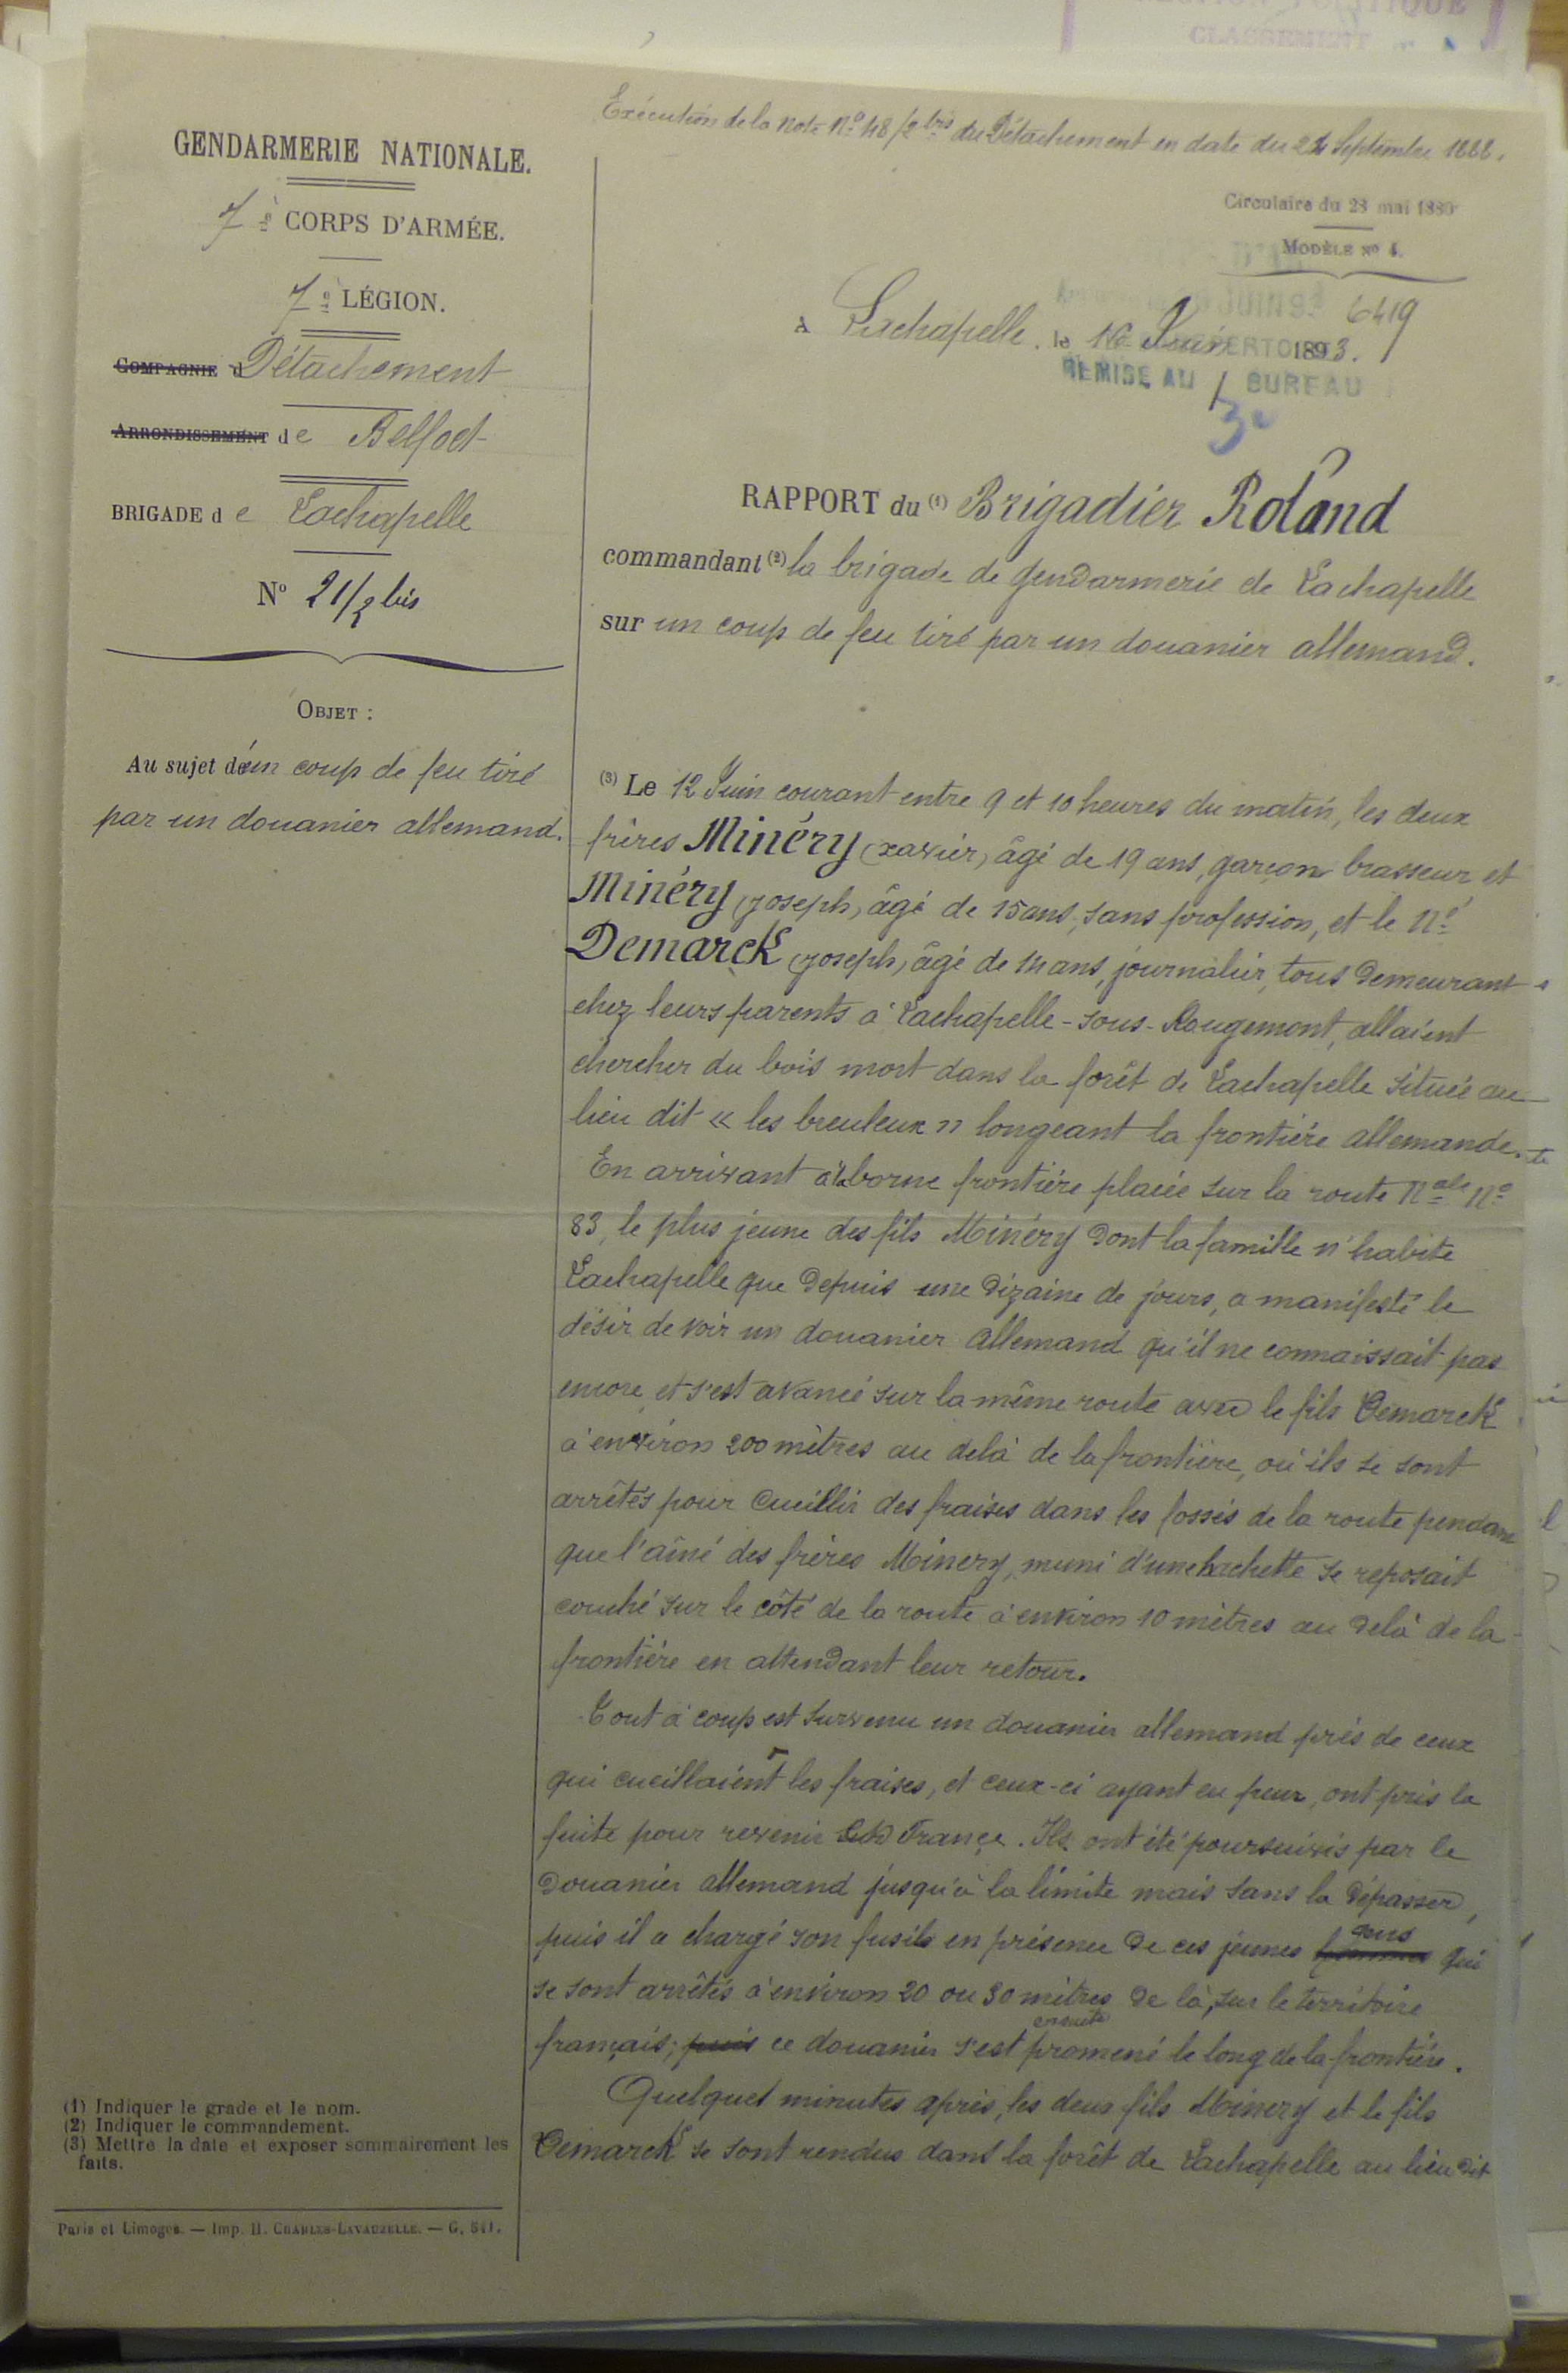 SECTION POLITIQUE
CLASSEMENT
Exécution de la note No 48/2 bis du Détachement en date du 24 Septembre 1888.
GENDARMERIE NATIONALE.
7e CORPS D'ARMÉE.
7e LÉGION.
COMPAGNIE d Détachement
ARRONDISSEMENT de Belfort
BRIGADE de Lachapelle
No 21/2 bis
OBJET :
Au sujet d'un coup de feu tiré
par un douanier allemand.
Circulaire du 23 mai 1880
MODÈLE No 4.
JUIN 93 6419
A Lachapelle, le 16 Juin 1893.
REMISE AU BUREAU
3e
RAPPORT du (1) Brigadier Roland
commandant (2) la brigade de gendarmerie de Lachapelle
sur un coup de feu tiré par un douanier allemand.
(3) Le 12 Juin courant entre 9 et 10 heures du matin, les deux
frères Minéry (xavier) âgé de 19 ans, garçon brasseur, et
Minéry (joseph) âgé de 15 ans, sans profession, et le né
Demarck (joseph) âgé de 14 ans, journalier, tous demeurant
chez leurs parents à Lachapelle-sous-Rougemont, allaient
chercher du bois mort dans la forêt de Lachapelle située au
lieu dit « les breuleux » longeant la frontière allemande.
En arrivant à la borne frontière placée sur la route Nale No
83, le plus jeune des fils Minéry dont la famille n'habite
Lachapelle que depuis une dizaine de jours, a manifesté le
désir de voir un douanier allemand qu'il ne connaissait pas
encore, et s'est avancé sur la même route avec le fils Demarck
à environ 200 mètres au delà de la frontière, où ils se sont
arrêtés pour cueillir des fraises dans les fossés de la route pendant
que l'aîné des frères Minery, muni d'une hachette se reposait
couché sur le côté de la route à environ 10 mètres au delà de la
frontière en attendant leur retour.
Tout à coup est survenu un douanier allemand près de ceux
qui cueillaient les fraises, et ceux-ci ayant eu peur, ont pris la
fuite pour revenir en France. Ils ont été poursuivis par le
douanier allemand jusqu'à la limite mais sans la dépasser,
puis il a chargé son fusil en présence de ces jeunes gens qui
se sont arrêtés à environ 20 ou 30 mètres de là, sur le territoire
français; puis ce douanier s'est ensuite promené le long de la frontière.
Quelques minutes après, les deux fils Minery et le fils
Demarck se sont rendus dans la forêt de Lachapelle au lieu dit
(1) Indiquer le grade et le nom.
(2) Indiquer le commandement.
(3) Mettre la date et exposer sommairement les
faits.
Paris et Limoges. — Imp. H. CHARLES-LAVAUZELLE. — G. 541.